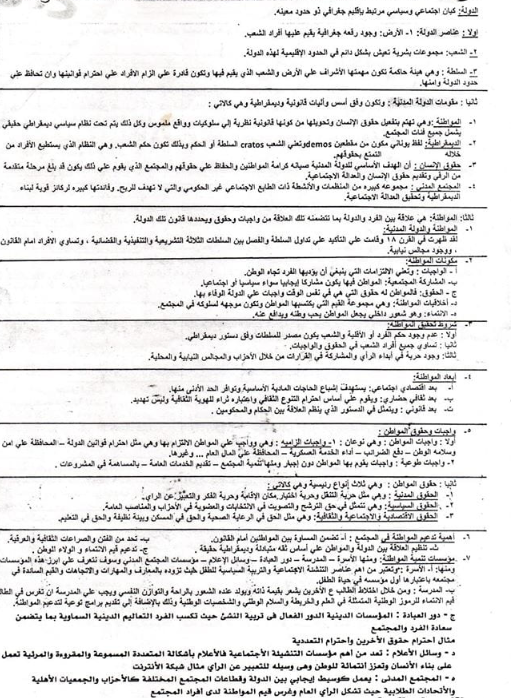 الدولة: كيان اجتماعي وسياسي مرتبط بإقليم جغرافي ذو حدود معينه.
اولا : عناصر الدولة: ١- الأرض: وجود رقعه جغرافية يقيم عليها أفراد الشعب.
٢- الشعب: مجموعات بشرية تعيش بشكل دائم في الحدود الإقليمية لهذه الدولة.
٣- السلطة : وهي هيئة حاكمة تكون مهمتها الأشراف علي الأرض والشعب الذي يقيم فيها وتكون قادرة علي الزام الأفراد علي احترام قوانينها وان تحافظ علي
حدود الدولة وامنها.
ثانيا : مقومات الدولة المدنية : وتكون وفق أسس وأليات قانونية وديمقراطية وهي كالاتي :
١- المواطنة :وهي تهتم بتفعيل حقوق الإنسان وتحويلها من كونها قانونية نظرية إلي سلوكيات وواقع ملموس وكل ذلك يتم تحت نظام سياسي ديمقراطي حقيقي
يشمل جميع فئات المجتمع.
٢- الديمقراطية: لفظ يوناني مكون من مقطعين demos وتعني الشعب cratos السلطة أو الحكم وبذلك تكون حكم الشعب. وهي النظام الذي يستطيع الأفراد من
خلاله التمتع بحقوقهم.
٣- حقوق الإنسان : أن الهدف الأساسي للدولة المدنية صيانه كرامة المواطنين والحفاظ علي حقوقهم والمجتمع الذي يقوم علي ذلك يكون قد بلغ مرحلة متقدمة
من الرقي وتقديم حقوق الإنسان والعدالة الاجتماعية.
٤- المجتمع المدني : مجموعه كبيره من المنظمات والأنشطة ذات الطابع الاجتماعي غير الحكومي والتي لا تهدف للربح. وفائدتها كبيره لركائز قوية لبناء
الديمقراطية وتحقيق العدالة الاجتماعية.
ثالثا: المواطنة: هي علاقة بين الفرد والدولة بما تتضمنه تلك العلاقة من واجبات وحقوق ويحددها قانون تلك الدولة.
١- المواطنة والدولة المدنية:
لقد ظهرت في القرن ١٨ وقامت علي التأكيد علي تداول السلطة والفصل بين السلطات الثلاثة التشريعية والتنفيذية والقضائية ، وتساوي الأفراد امام القانون
، ووجود مجالس نيابية.
٢- مكونات المواطنة:
أ - الواجبات : وتعني الالتزامات التي ينبغي أن يؤديها الفرد تجاه الوطن.
ب- المشاركة المجتمعية: المواطن فيها يكون مشاركا إيجابيا سواء سياسيا أو اجتماعيا.
ج - الحقوق: فالمواطن له حقوق التي هي في نفس الوقت واجبات علي الدولة الوفاء بها.
د- أخلاقيات المواطنة: وهي مجموعة القيم التي يكتسبها المواطن وتكون موجهه لسلوكه في المجتمع.
ه- الانتماء: وهو شعور داخلي يجعل المواطن يحب وطنه ويدافع عنه.
٣- شروط تحقيق المواطنة:
أولا : عدم وجود حكم الفرد أو الأقلية والشعب يكون مصدر للسلطات وفق دستور ديمقراطي.
ثانيا : تساوي جميع أفراد الشعب في الحقوق والواجبات.
ثالثا: وجود حرية في أبداء الرأي والمشاركة في القرارات من خلال الأحزاب والمجالس النيابية والمحلية.
٤- أبعاد المواطنة:
أ- بعد اقتصادي اجتماعي: يستهدف إشباع الحاجات المادية الأساسية وتوافر الحد الأدنى منها.
ب- بعد ثقافي حضاري: ويقوم علي أساس احترام التنوع الثقافي واعتباره ثراء للهوية الثقافية وليس تهديد.
ت- بعد قانوني : ويتمثل في الدستور الذي ينظم العلاقة بين الحكام والمحكومين .
٥- واجبات وحقوق المواطن :
أولا : واجبات المواطن : وهي نوعان : ١- واجبات إلزاميه : وهي واجب علي المواطن الالتزام بها وهي مثل احترام قوانين الدولة – المحافظة علي امن
وسلامه الوطن – دفع الضرائب – أداء الخدمة العسكرية – المحافظة علي المال العام ... وغيرها.
٢- واجبات طوعية : واجبات يقوم بها المواطن دون إجبار ومنها تنمية المجتمع – تقديم الخدمات العامة – بالمساهمة في المشروعات .
ثانيا : حقوق المواطن : وهي ثلاث أنواع رئيسية وهي كالاتي :
١- الحقوق المدنية : وهي مثل حرية التنقل وحرية اختيار مكان الإقامة وحرية الفكر والتعبير عن الراي.
٢- الحقوق السياسية : وهي تتمثل في حق الترشح والتصويت في الانتخابات والعضوية في الأحزاب والمناصب العامة.
٣- الحقوق الاقتصادية والاجتماعية والثقافية: وهي مثل الحق في الرعاية الصحية والحق في المسكن وبيئة نظيفة والحق في التعليم.
٦- أهمية تدعيم المواطنة في المجتمع : أ- تضمن المساواة بين المواطنين أمام القانون. ب- تحد من الفتن والصراعات الثقافية والعرقية.
ث- تنظيم العلاقة بين الدولة والمواطن علي أساس ثقه متبادلة وديمقراطية حقيقة . ج- تدعيم قيم الانتماء و الولاء الوطن .
٧- مؤسسات تنمية المواطنة: ومنها الأسرة – المدرسة – دور العبادة – وسائل الإعلام – مؤسسات المجتمع المدني وسوف نتعرف علي ابرز هذه المؤسسات
ومنها: أ- الأسرة : وتعتبر من اهم عناصر التنشئة الاجتماعية والتربية السياسية للطفل حيث تزوده بالمعارف والمهارات والاتجاهات والقيم السائدة في
مجتمعه باعتبارها أول مؤسسه في حياة الطفل.
ب- المدرسة : ومن خلال اختلاط الطالب ع الأخرين يشعر بقيمة ذاته ويولد عنده الشعور بالراحة والتوازن النفسي ويجب علي المدرسة ان تغرس في الطالب
قيم الانتماء للرموز الوطنية المتمثلة في العلم والخريطة والسلام الوطني والشخصيات الوطنية وذلك بالإضافة إلي تقديم برامج توعية لتدعيم المواطنة.
ج - دور العبادة : المؤسسات الدينية الدور الفعال فى تربية النشئ حيث تكسب الفرد التعاليم الدينية السماوية بما يتضمن
سعادة الفرد والمجتمع
مثال احترام حقوق الأخرين واحترام التعددية
د - وسائل الأعلام : تعد من أهم مؤسسات التنشيئة الأجتماعية فالأعلام بأشكالة المتعددة المسموعة والمقروءة والمرئية تعمل
على بناء الأنسان وتعزز أنتمائة للوطن وهى وسيلة للتعبير عن الرأي مثال شبكة الأنترنت
ه - المجتمع المدنى : يعمل كوسيط إيجابى بين الدولة وقطاعات المجتمع المختلفة كالأحزاب والجمعيات الأهلية
والأتحادات الطلابية حيث تشكل الرأى العام وغرس قيم المواطنة لدى أفراد المجتمع